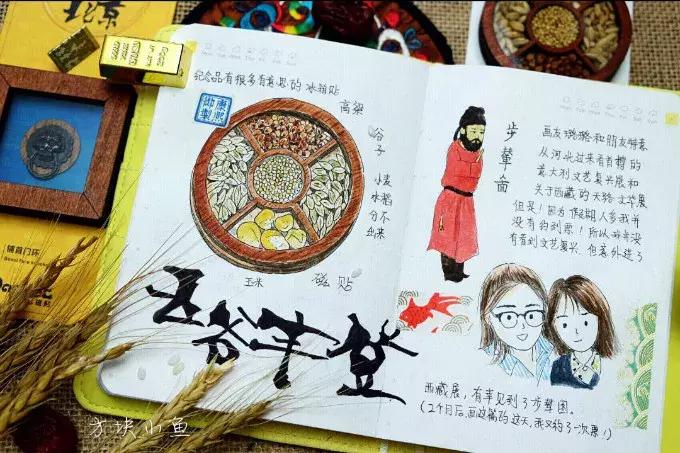 纪念品有很多有意思的冰箱贴
高粱
谷子
小麦
水稻
分不出来
玉米
磁贴
五谷丰登
步辇图
画友璐璐和朋友特意
从河北过来看首博的
意大利文艺复兴展和
关于西藏的天路文华展
但是!因为假期人多我并
没有约到票!所以
有看到文艺复兴,但意外进了
西藏展,有幸见到了步辇图。
(2个月后,画这篇的这天,我又约了一次票!)
铺首门环
方块小鱼